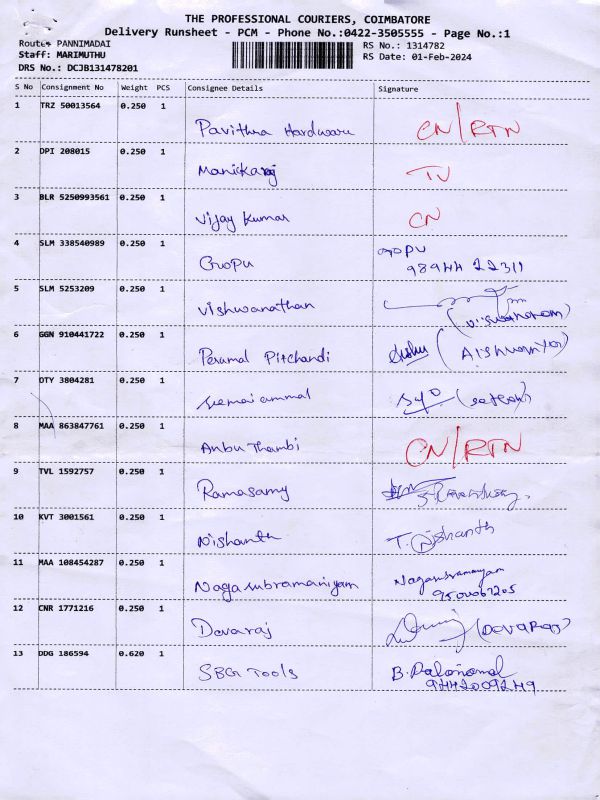 THE PROFESSIONAL COURIERS, COIMBATORE
Delivery Runsheet - PCM - Phone No.:0422-3505555 - Page No.:1
Route: PANNIMADAI
RS No.: 1314782
Staff: MARIMUTHU
RS Date: 01-Feb-2024
DRS No.: DCJB131478201
S No Consignment No Weight PCS Consignee Details Signature
1 TRZ 50013564 0.250 1
Pavithra Hardware CN/RTN
2 DPI 208015 0.250 1
Manickaraj
3 BLR 5250993561 0.250 1
Vijay Kumar CN
4 SLM 338540989 0.250 1
Gopu GOPU
98944 22311
5 SLM 5253209 0.250 1
Vishwanathan
6 GGN 910441722 0.250 1
Perumal Pitchandi (Aishwarya)
7 DTY 3804281 0.250 1
8 MAA 863847761 0.250 1
Anbu Thambi CN/RTN
9 TVL 1592757 0.250 1
Ramasamy
10 KVT 3001561 0.250 1
Nishanth T. Nishanth
11 MAA 108454287 0.250 1
Nagasubramaniyam
9500067205
12 CNR 1771216 0.250 1
Devaraj (DEVARAJ)
13 DDG 186594 0.620 1
SBG Tools
9442009249